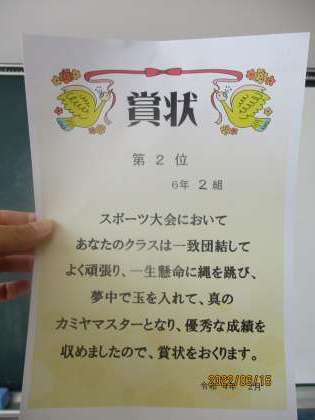 賞状
第 2 位
6年 2 組
スポーツ大会において
あなたのクラスは一致団結して
よく頑張り、一生懸命に縄を跳び、
夢中で玉を入れて、真の
カミヤマスターとなり、優秀な成績を
収めましたので、賞状をおくります。